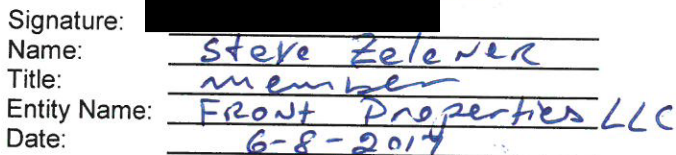 Signature:
Name: Steve Zelener
Title: member
Entity Name: Front Properties LLC
Date: 6-8-2014